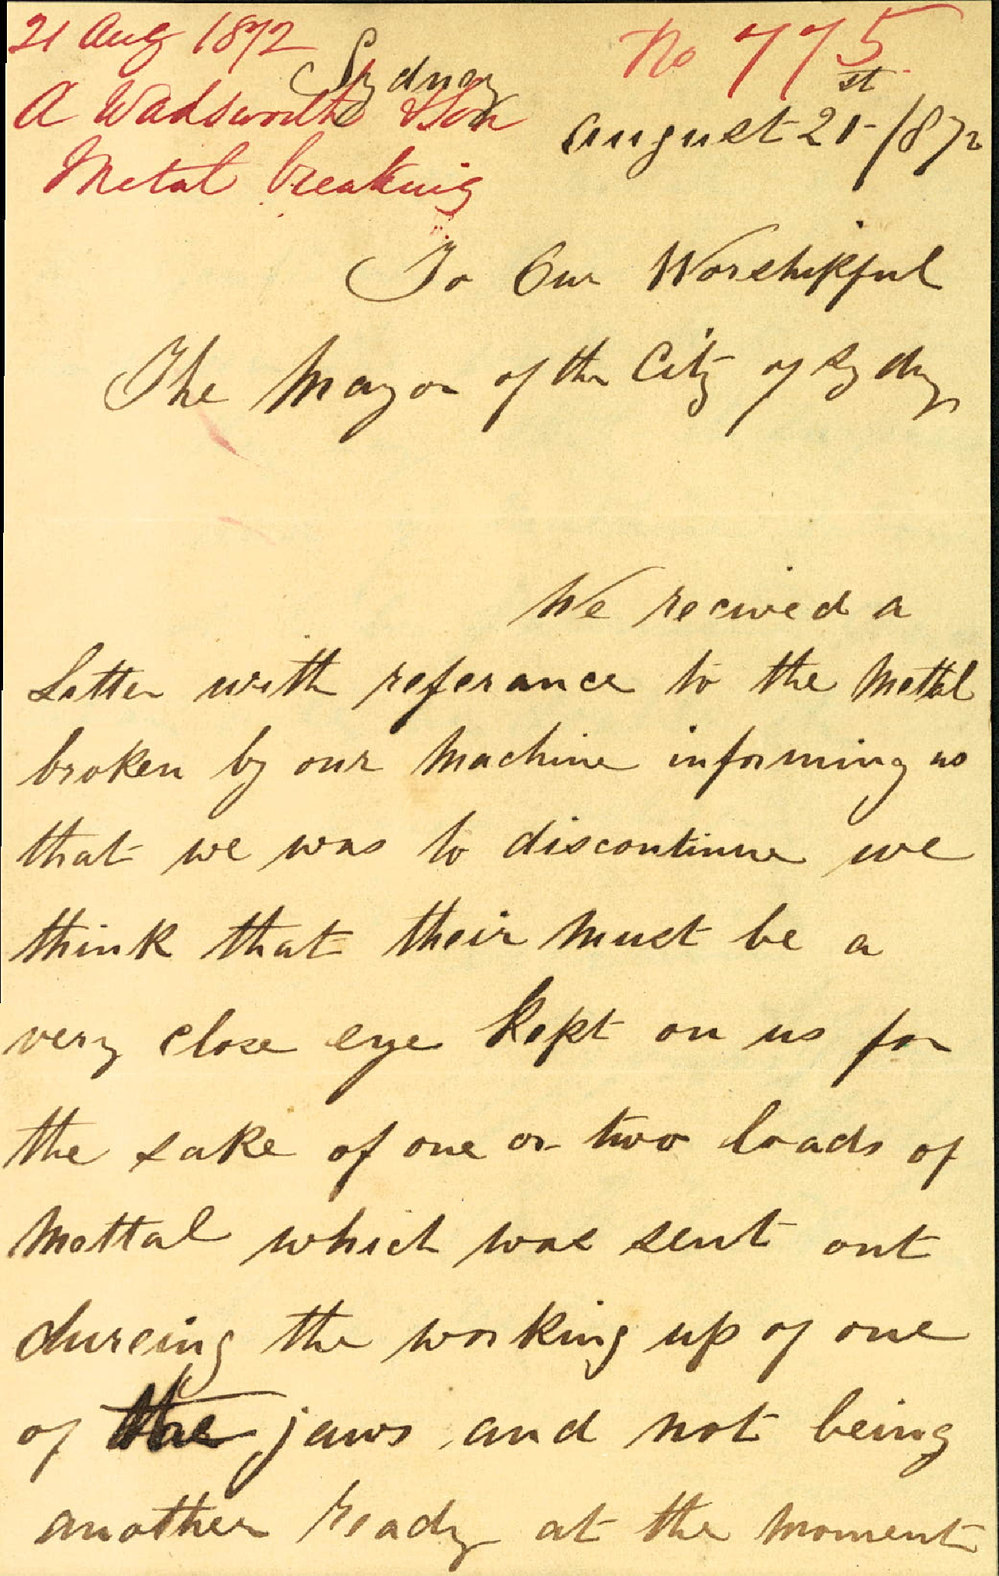 21 Aug 1872
No 775
Sydney
A Wadsworth & Son
August 21st /872
Metal breaking
To Our Worshipful
The Mayor of the City of Sydney
We recived a
Letter with referance to the Mettal
broken by our Machine informing us
that we was to discontinue we
think that their must be a
very close eye Kept on us for
the sake of one or two loads of
Mettal which was sent out
dureing the working up of one
of the jaws and not being
another ready at the moment